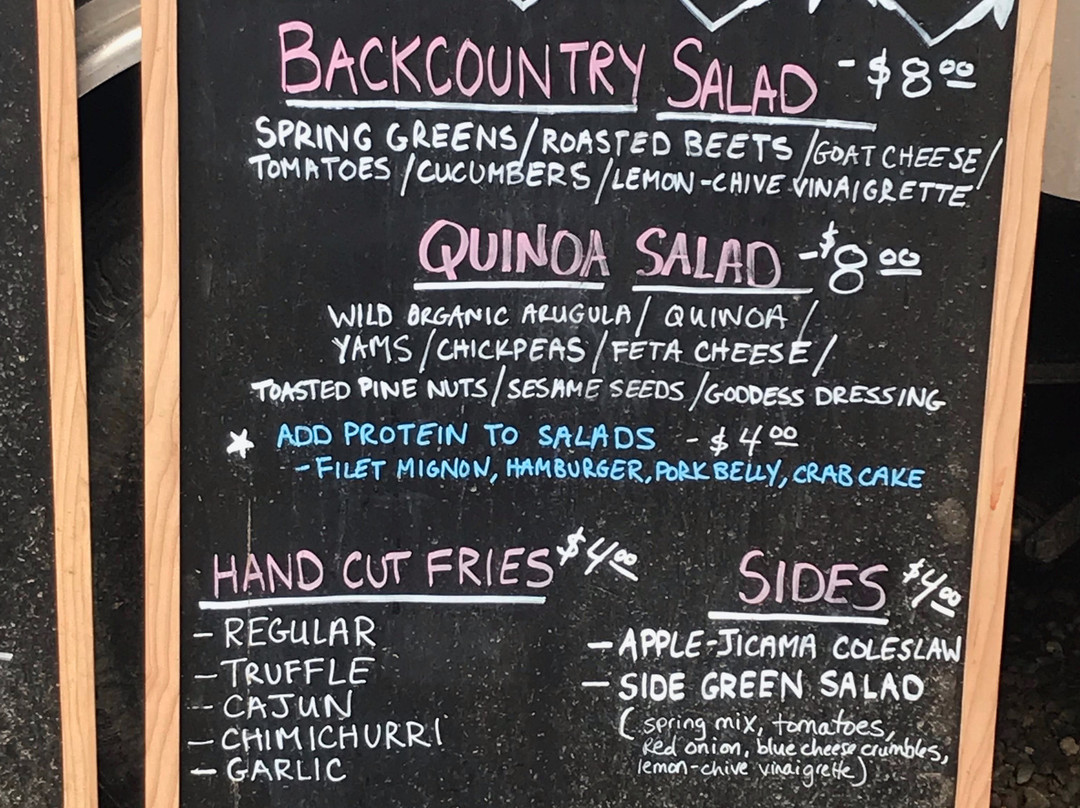 BACKCOUNTRY SALAD - $8.00
SPRING GREENS/ROASTED BEETS/GOAT CHEESE/
TOMATOES/CUCUMBERS/LEMON-CHIVE VINAIGRETTE
QUINOA SALAD -$8.00
WILD ORGANIC ARUGULA/ QUINOA/
YAMS/CHICKPEAS/FETA CHEESE/
TOASTED PINE NUTS/SESAME SEEDS/GODDESS DRESSING
ADD PROTEIN TO SALADS - $4.00
- FILET MIGNON, HAMBURGER, PORK BELLY, CRAB CAKE
HAND CUT FRIES $4.00
- REGULAR
- TRUFFLE
- CAJUN
- CHIMICHURRI
- GARLIC
SIDES $4.00
- APPLE-JICAMA COLESLAW
- SIDE GREEN SALAD
(spring mix, tomatoes,
Red onion, blue cheese crumbles,
lemon-chive vinaigrette)